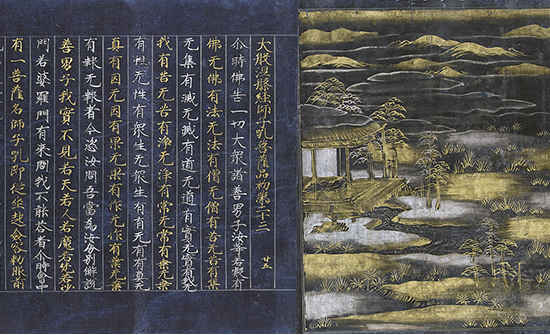 大般涅槃經師子吼菩薩品初第二十三 廿五
尒時佛告一切大衆諸善男子汝等若疑有
佛无佛有法无法有僧无僧有苦无苦有集
无集有滅无滅有道无道有實无實有我无
我有苦无苦有淨无淨有常无常有乘无乘
有性无性有衆生无衆生有有无有有真无
真有因无因有果无果有作无作有業无業
有報无報者今恣汝問吾當為汝分別解說
善男子我實不見若天若人若魔若梵若沙
門若婆羅門有来問我不能荅者尒時會中
有一菩薩名師子吼即從坐起斂容整服前